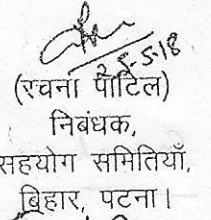 25-5-18
(रचना पाटिल)
निबंधक,
सहयोग समितियाँ,
बिहार, पटना।